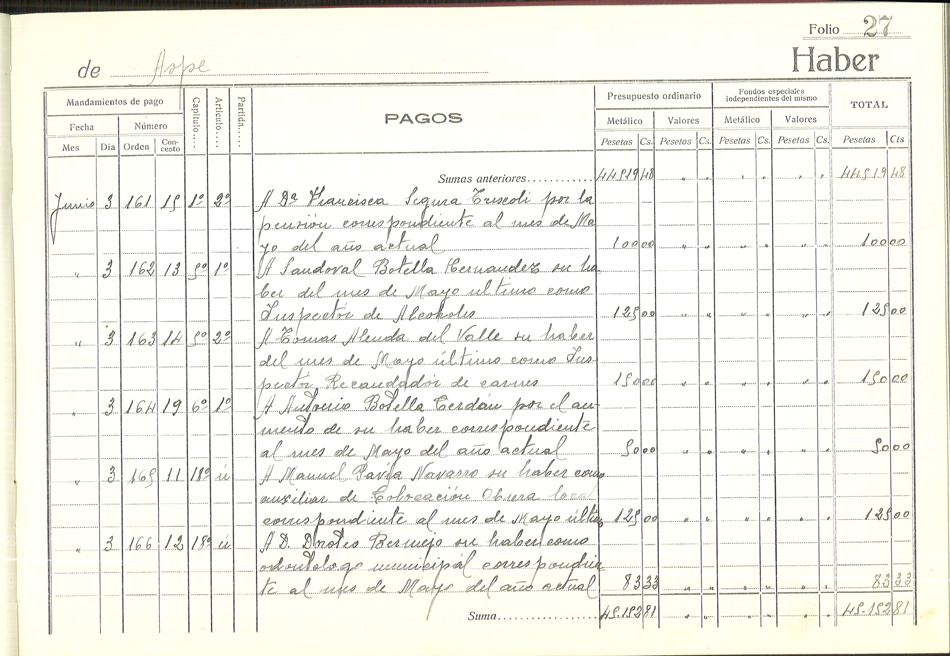 Folio 27
de Aspe
Haber
Mandamientos de pago
Capítulo.... Artículo.... Partida....
PAGOS
Presupuesto ordinario
Fondos especiales
independientes del mismo
TOTAL
Fecha Número
Metálico Valores Metálico Valores
Mes Día Orden Con-
cepto
Pesetas Cs. Pesetas Cs. Pesetas Cs. Pesetas Cs. Pesetas Cts
Sumas anteriores............ 44519 48 " " " " " " 44519 48
Junio 3 161 15 1º 2º A Dª Francisca Segura por la
pensión correspondiente al mes de Ma
yo del año actual 100 00 " " " " " " 100 00
" 3 162 13 5º 1º A Sandoval Botella Hernandez su ha
ber del mes de Mayo ultimo como
Inspector de Alcoholes 125 00 " " " " " " 125 00
" 3 163 14 5º 2º A Tomas Alenda del Valle su haber
del mes de Mayo último como Ins-
pector Recaudador de carnes 150 00 " " " " " " 150 00
" 3 164 19 6º 1º A Antonio Botella Cerdán por el au-
mento de su haber correspondiente
al mes de Mayo del año actual 50 00 " " " " " " 50 00
" 3 165 11 18º ú A Manuel Pavía Navarro su haber como
auxiliar de Colocación Obrera local
correspondiente al mes de Mayo último 125 00 " " " " " " 125 00
" 3 166 12 18º ú A D. Doroteo Bermejo su haber como
odontologo municipal correspondien
te al mes de Mayo del año actual 83 33 " " " " " " 83 33
Suma.................. 45.152 81 " " " " " " 45.152 81